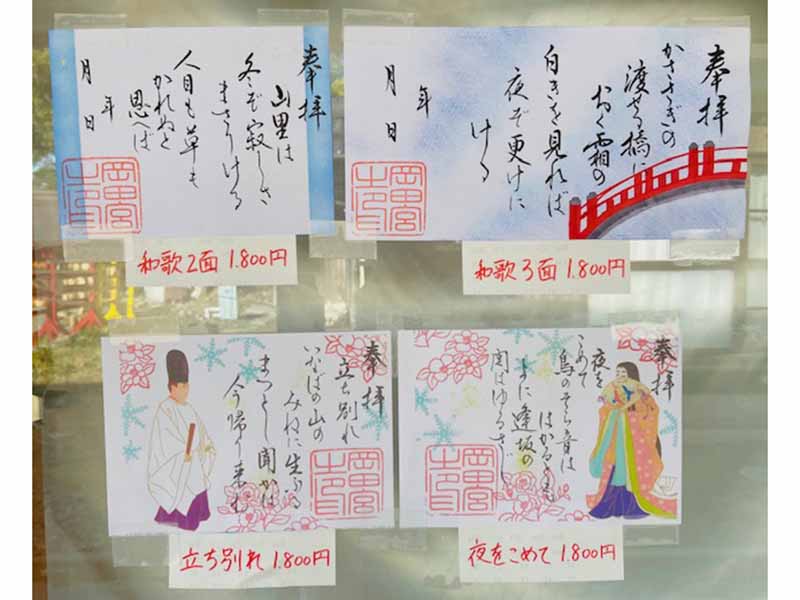 奉拝
山里は
冬ぞ寂しさ
まさりける
人目も草も
かれぬと
思へば
年
月 日
和歌2面 1.800円
奉拝
かささぎの
渡せる橋に
おく霜の
白きを見れば
夜ぞ更けに
ける
年
月 日
和歌3面 1.800円
奉拝
立ち別れ
いなばの山の
みねに生ふる
まつとし聞かば
今帰り来む
立ち別れ 1.800円
奉拝
夜を
こめて
鳥のそら音は
はかるとも
よに逢坂の
関はゆるさじ
夜をこめて 1.800円